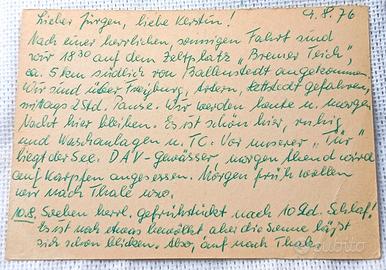 Lieber Jürgen, liebe Kerstin! 9.8.76
Nach einer herrlichen, sonnigen Fahrt sind
wir 18³⁰ auf dem Zeltplatz „Bremer Teich",
ca. 5 km südlich von Ballenstedt angekommen.
Wir sind über Freyburg, Artern, Hettstedt gefahren,
mittags 2 Std. Pause. Wir werden heute u. morgen
Nacht hier bleiben. Es ist schön hier, ruhig
und Waschanlagen u. TC. Vor unserer „Tür"
liegt der See. DAV-Gewässer, morgen Abend wird
auf Karpfen angesessen. Morgen früh wollen
wir nach Thale usw.
10.8. Soeben herrl. gefrühstückt nach 10 Std. Schlaf!
Es ist noch etwas bewölkt, aber die Sonne läßt
sich schon blicken. Also, auf nach Thale
Subito